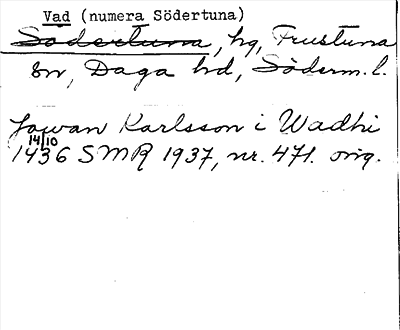 Vad (numera Södertuna)
Södertuna, hg, Frustuna
sn, Daga hd, Söderm. l.
Jowan Karlsson i Wadhi
14/10
1436 SMR 1937, nr. 471. orig.